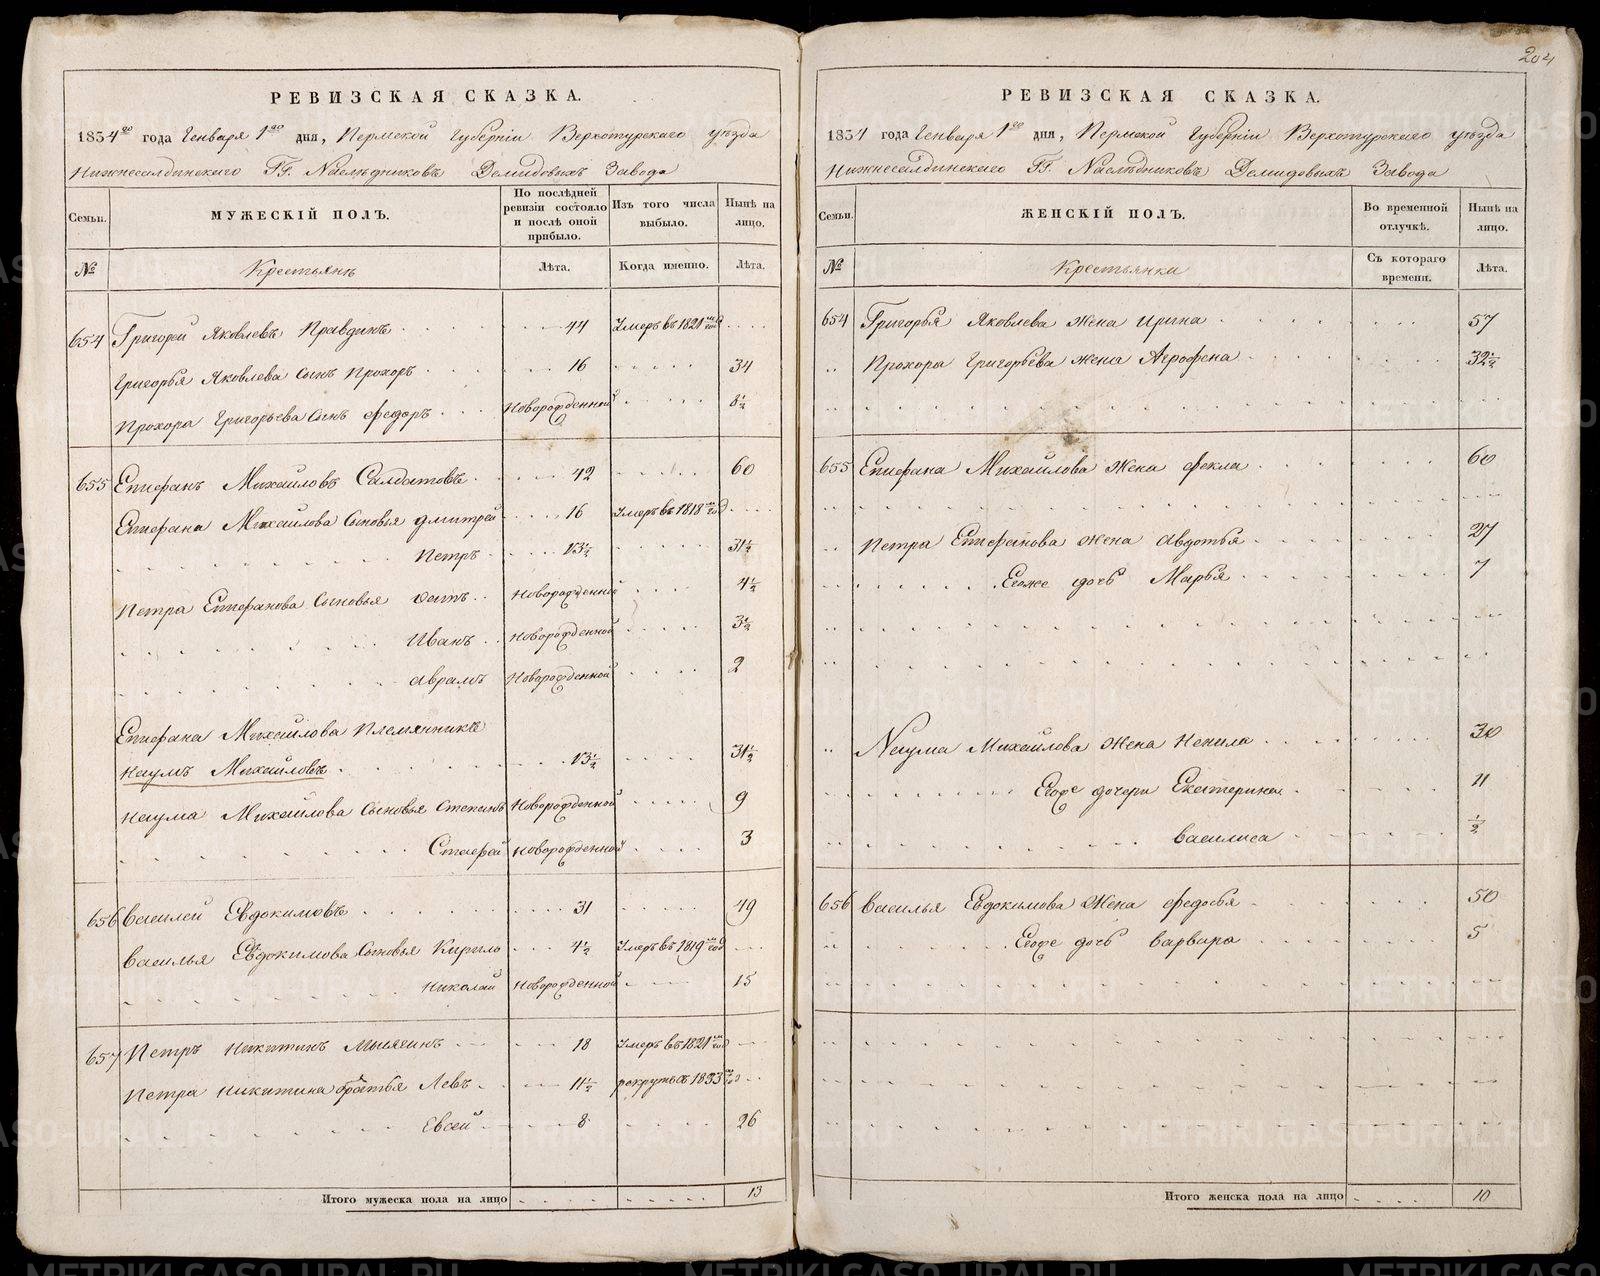 204
РЕВИЗСКАЯ СКАЗКА.
1834го года Генваря 1го дня, Пермской Губернiи Верхотурскаго уѣзда
Нижнесалдинскаго ГГ. Наслѣдниковъ Демидовыхъ Завода
Семьи.
МУЖЕСКIЙ ПОЛЪ.
По послѣдней ревизiи состояло и послѣ оной прибыло.
Изъ того числа выбыло.
Нынѣ на лицо.
№
Крестьянъ
Лѣта.
Когда именно.
Лѣта.
654 Григорей Яковлевъ Правдинъ 44 Умеръ въ 1821 год
Григорья Яковлева сынъ Прохоръ 16 34
Прохора Григорьева сынъ Федоръ Новорожденной 8½
655 Епифанъ Михайловъ Салдатовъ 42 60
Епифана Михайлова Сыновья Дмитрей 16 Умеръ въ 1818 год
Петръ 13½ 31½
Петра Епифанова Сыновья Осипъ Новорожденной 4½
Иванъ Новорожденной 3½
Аврамъ Новорожденной 2
Епифана Михайлова Племянникъ
Наумъ Михайловъ 13½ 31½
Наума Михайлова Сыновья Степанъ Новорожденной 9
Новорожденной 3
656 Василей Евдокимовъ 31 49
Василья Евдокимова Сыновья Кирило 4½ Умеръ въ 1819 год
Николай Новорожденной 15
657 Петръ Никитинъ 18 Умеръ въ 1821 год
Петра Никитина братья Левъ 11½ рекруты въ 1833
Евсей 8 26
Итого мужеска пола на лицо 13
РЕВИЗСКАЯ СКАЗКА.
1834 года Генваря 1го дня, Пермской Губернiи Верхотурскаго уѣзда
Нижнесалдинскаго ГГ. Наслѣдниковъ Демидовыхъ Завода
Семьи.
ЖЕНСКIЙ ПОЛЪ.
Во временной отлучкѣ.
Нынѣ на лицо.
№
Крестьянки
Съ котораго времени.
Лѣта.
654 Григорья Яковлева жена Ирина 57
Прохора Григорьева жена Агрофена 32½
655 Епифана Михайлова жена Фекла 60
Петра Епифанова жена Авдотья 27
Егоже дочь Марья 7
Наума Михайлова жена Ненила 30
Егоже дочери Екатерина 11
Василиса ½
656 Василья Евдокимова жена Федосья 50
Егоже дочь Варвара 5
Итого женска пола на лицо 10
METRIKI.GASO-URAL.RU